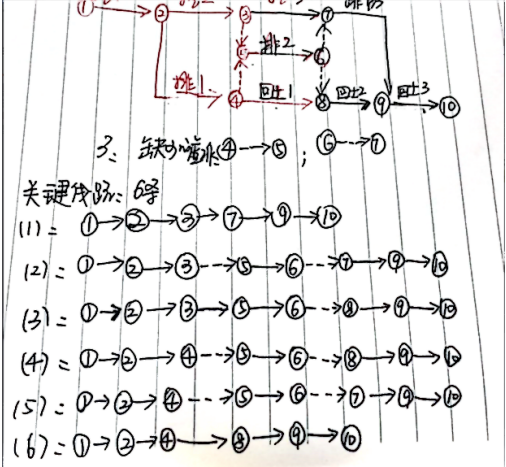 ① ② ③ ⑦
⑤ 排2 ⑥
排1 ④ 回土1 ⑧ 回土2 ⑨ 回土3 ⑩
3、缺少 ④→⑤; ⑥⇢⑦
关键线路: 6条
(1)= ①→②→③→⑦→⑨→⑩
(2)= ①→②→③⇢⑤→⑥⇢⑦→⑨→⑩
(3)= ①→②→③→⑤→⑥⇢⑧→⑨→⑩
(4)= ①→②→④⇢⑤→⑥⇢⑧→⑨→⑩
(5)= ①→②→④⇢⑤→⑥⇢⑦→⑨→⑩
(6)= ①→②→④→⑧→⑨→⑩